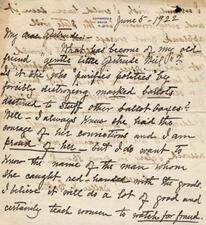 June 5 - 1922
My dear Gertrude:
What has become of my old
friend gentle little Gertrude Weil??
Is it she who "purifies politics by
forcibly destroying marked ballots
destined to stuff other ballot boxes?
Well - I always knew she had the
courage of her convictions and I am
proud of her - but I do want to
know the name of the man whom
she caught red-handed with the goods.
I believe it will do a lot of good and
certainly teach women to watch for fraud.